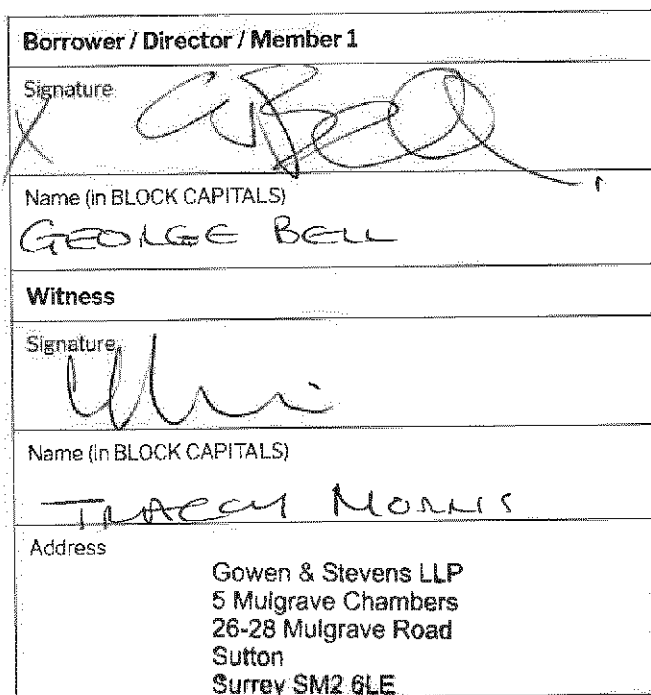 Borrower / Director / Member 1
Signature
X
Name (in BLOCK CAPITALS)
GEORGE BELL
Witness
Signature
Name (in BLOCK CAPITALS)
TRACEY MORRIS
Address
Gowen & Stevens LLP
5 Mulgrave Chambers
26-28 Mulgrave Road
Sutton
Surrey SM2 6LE